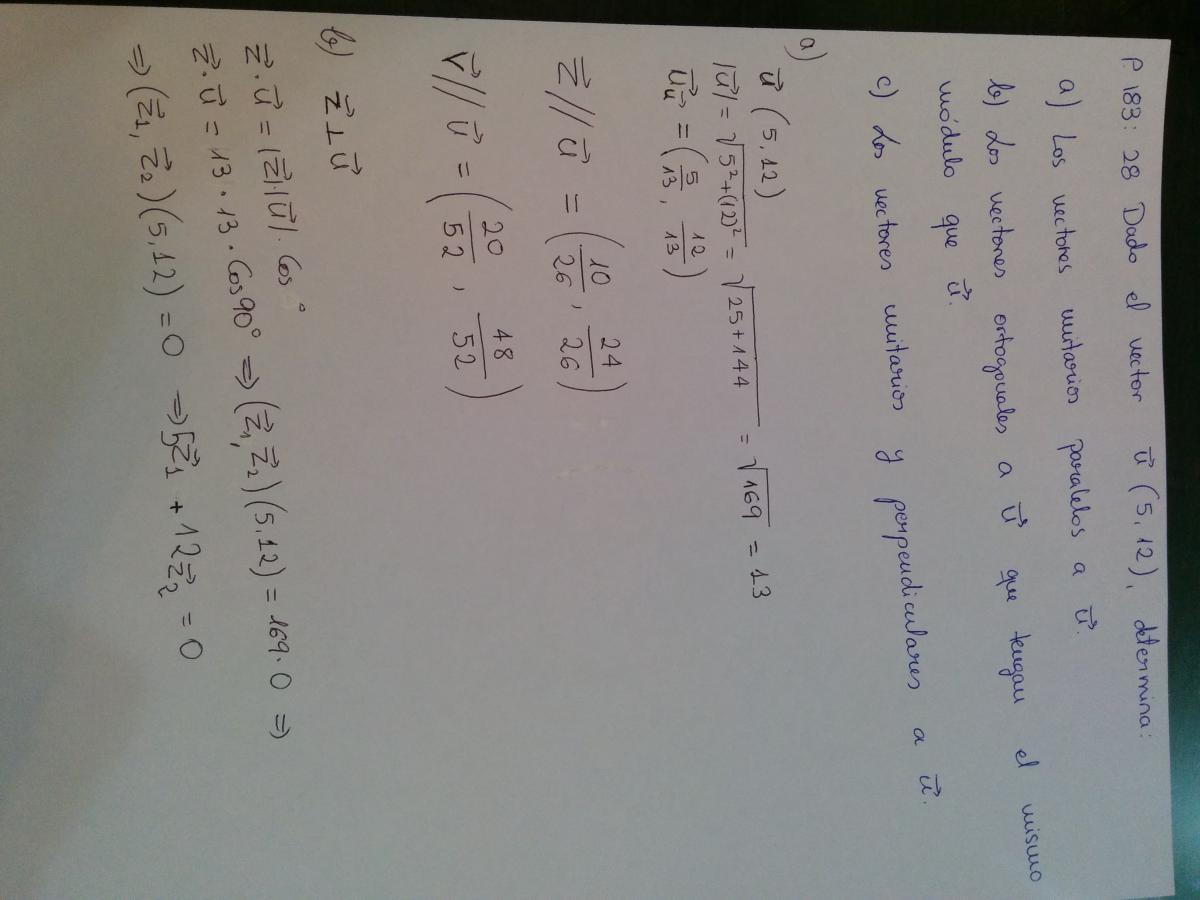 P.183: 28 Dado el vector u⃗ (5,12), determina:
a) Los vectores unitarios paralelos a u⃗.
b) Los vectores ortogonales a u⃗ que tengan el mismo
módulo que u⃗.
c) Los vectores unitarios y perpendiculares a u⃗.
a)
u⃗ (5,12)
|u⃗| = √(5²+(12)²) = √(25+144) = √169 = 13
u⃗_u⃗ = (5/13, 12/13)
z⃗ // u⃗ = (10/26, 24/26)
v⃗ // u⃗ = (20/52, 48/52)
b) z⃗ ⊥ u⃗
z⃗ · u⃗ = |z⃗|·|u⃗| · cos °
z⃗ · u⃗ = 13 · 13 · cos 90° ⇒ (z⃗₁, z⃗₂)(5,12) = 169 · 0 ⇒
⇒ (z⃗₁, z⃗₂)(5,12) = 0 ⇒ 5z⃗₁ + 12z⃗₂ = 0